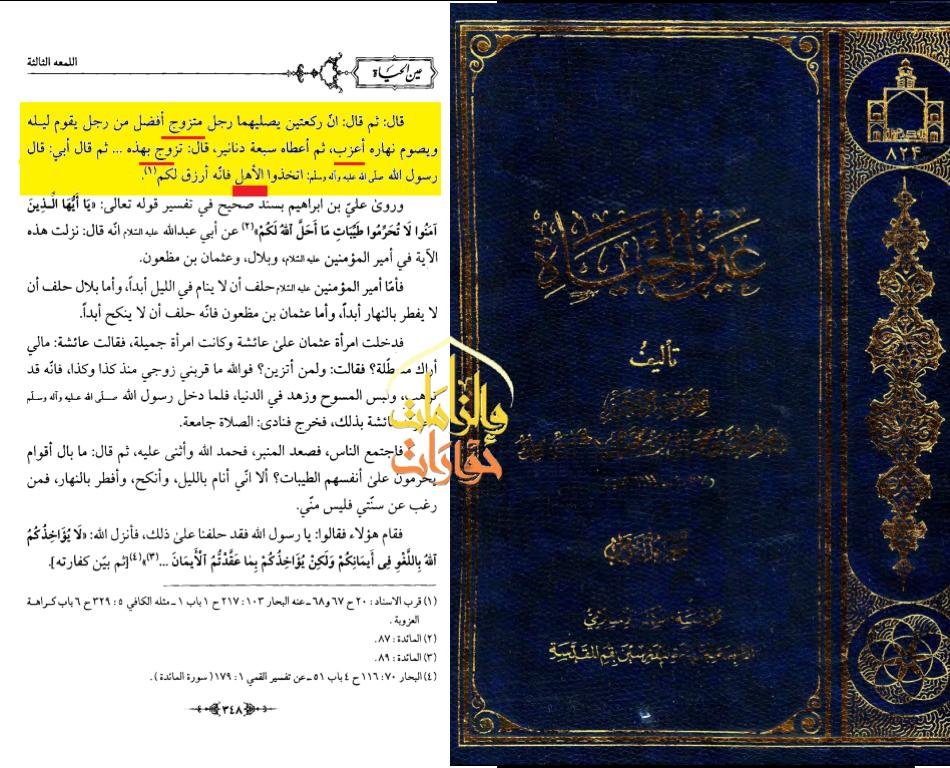 اللمعه الثالثة
عين الحياة
قال: ثم قال: انّ ركعتين يصليهما رجل متزوج أفضل من رجل يقوم ليله
ويصوم نهاره أعزب، ثم أعطاه سبعة دنانير، قال: تزوج بهذه ... ثم قال أبي: قال
رسول الله صلى الله عليه وآله وسلم: اتخذوا الأهل فانّه أرزق لكم(١).
وروىٰ عليّ بن ابراهيم بسند صحيح في تفسير قوله تعالى: «يَا أَيُّهَا الَّذِينَ
آمَنُوا لَا تُحَرِّمُوا طَيِّبَاتِ مَا أَحَلَّ اللهُ لَكُمْ»(٢) عن أبي عبدالله عليه السّلام انّه قال: نزلت هذه
الآية في أمير المؤمنين عليه السّلام، وبلال، وعثمان بن مظعون.
فأمّا أمير المؤمنين عليه السّلام حلف أن لا ينام في الليل أبداً، وأما بلال حلف أن
لا يفطر بالنهار أبداً، وأما عثمان بن مظعون فانّه حلف أن لا ينكح أبداً.
فدخلت امرأة عثمان علىٰ عائشة وكانت امرأة جميلة، فقالت عائشة: مالي
أراك فقالت: ولمن أتزين؟ فوالله ما قربني زوجي منذ كذا وكذا، فانّه قد
ولبس المسوح وزهد في الدنيا، فلما دخل رسول الله صلى الله عليه وآله وسلم
عائشة بذلك، فخرج فنادى: الصلاة جامعة.
فاجتمع الناس، فصعد المنبر، فحمد الله وأثنى عليه، ثم قال: ما بال أقوام
يحرمون علىٰ أنفسهم الطيبات؟ ألا انّي أنام بالليل، وأنكح، وأفطر بالنهار، فمن
رغب عن سنّتي فليس منّي.
فقام هؤلاء فقالوا: يا رسول الله فقد حلفنا علىٰ ذلك، فأنزل الله: «لَا يُؤَاخِذُكُمُ
اللهُ بِاللَّغْوِ فِي أَيمَانِكُمْ وَلَكِنْ يُؤَاخِذُكُمْ بِمَا عَقَّدْتُمُ الْأَيمَانَ ...(٣)»(٤) [ثم بيّن كفارته].
(١) قرب الاسناد: ٢٠ ح ٦٧ و٦٨ ـ عنه البحار ١٠٣: ٢١٧ ح ١ باب ١ ـ مثله الكافي ٥: ٣٢٩ ح ٦ باب كراهة
العزوبة.
(٢) المائدة: ٨٧.
(٣) المائدة: ٨٩.
(٤) البحار ٧٠: ١١٦ ح ٤ باب ٥١ ـ عن تفسير القمي ١: ١٧٩ (سورة المائدة).
٣٤٨
٨٢٤
عين الحياة
تأليف
حوارات
والزامات